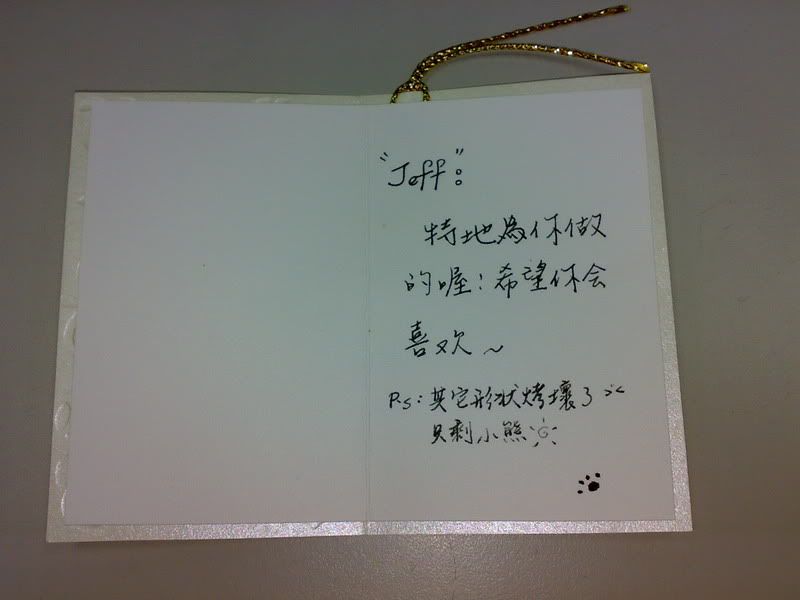 "Jeff":
特地為你做
的喔!希望你会
喜欢~
P.S:其它形狀烤壞了><
只剩小熊